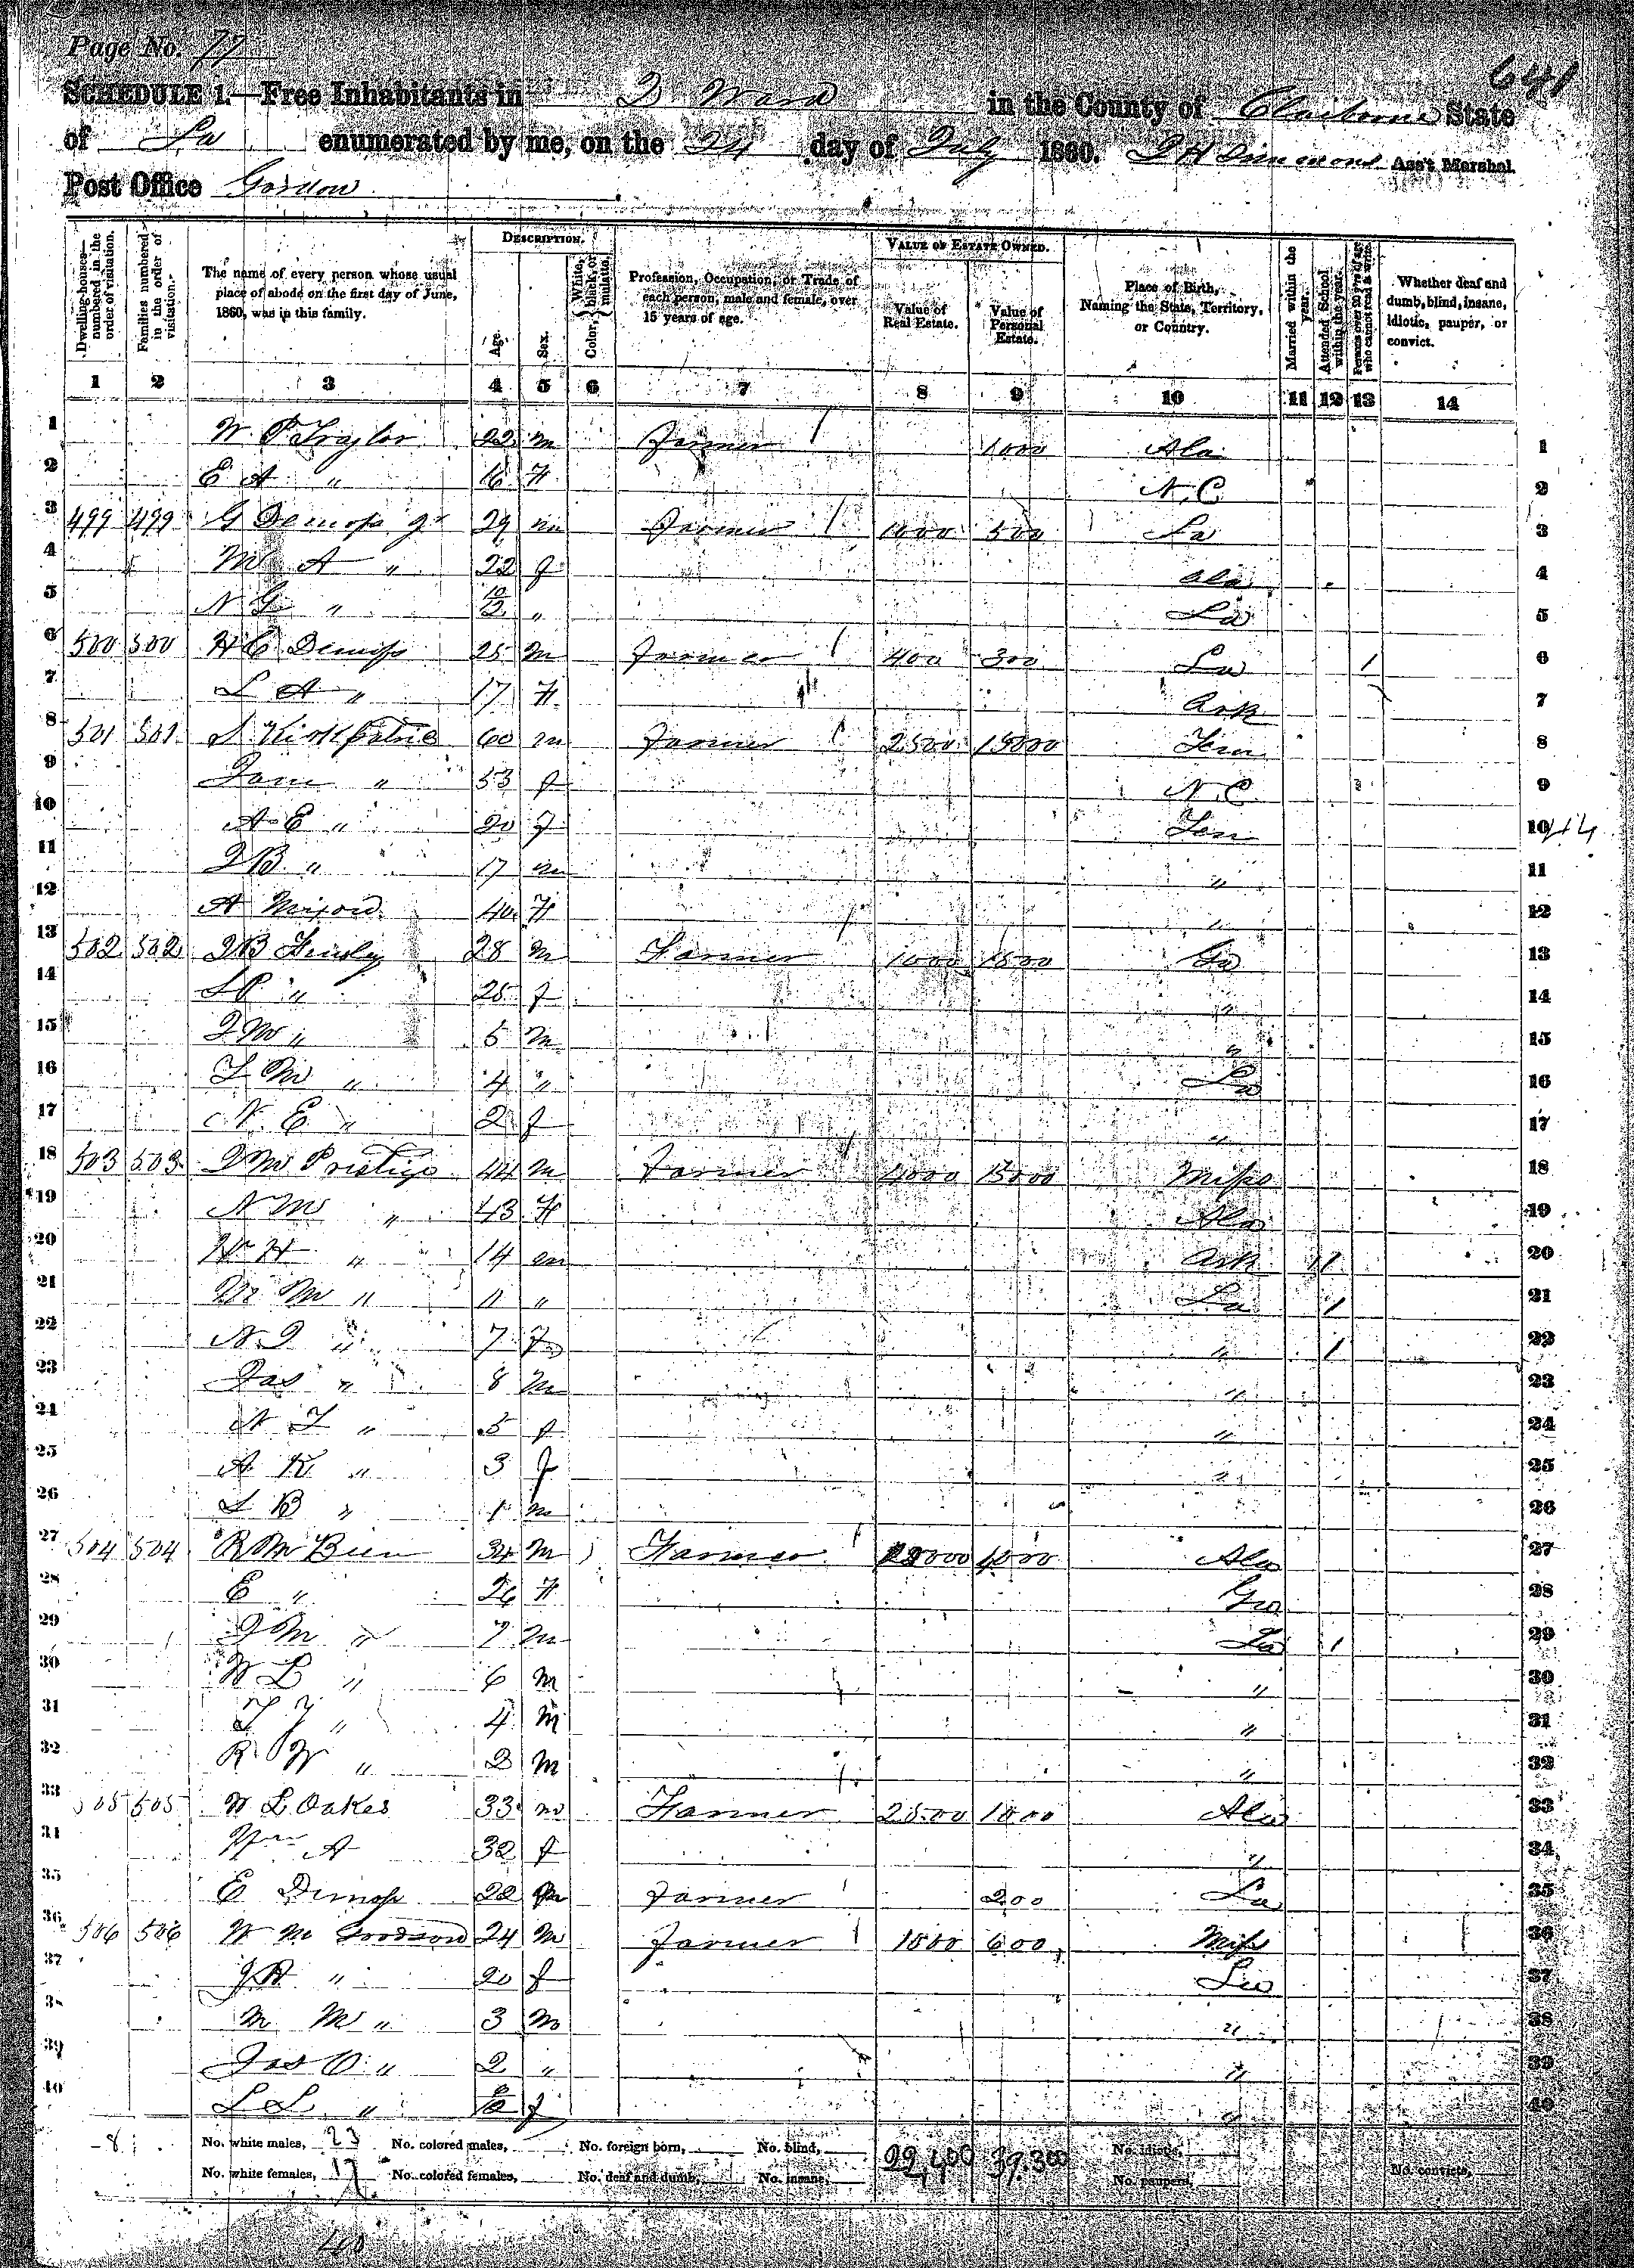 Page No. 77
641
SCHEDULE 1.—Free Inhabitants in 2 Ward in the County of Claiborne State
of La enumerated by me, on the 24 day of July 1860. Ass't Marshal.
Post Office Gordon
Dwelling-houses— numbered in the order of visitation.
Families numbered in the order of visitation.
The name of every person whose usual place of abode on the first day of June, 1860, was in this family.
DESCRIPTION.
Age.
Sex.
Color, White, black, or mulatto.
Profession, Occupation, or Trade of each person, male and female, over 15 years of age.
VALUE OF ESTATE OWNED.
Value of Real Estate.
Value of Personal Estate.
Place of Birth, Naming the State, Territory, or Country.
Married within the year.
Attended School within the year.
Persons over 20 y'rs of age who cannot read & write.
Whether deaf and dumb, blind, insane, idiotic, pauper, or convict.
1 2 3 4 5 6 7 8 9 10 11 12 13 14
1 W P Traylor 22 m Farmer 1000 Ala 1
2 E A " 16 F N.C. 2
3 499 499 G Demoss Jr 29 m Farmer 1000 500 La 3
4 M A " 22 f Ala 4
5 N G " 10/12 " La 5
6 500 500 H C Demoss 25 m Farmer 400 300 La 1 6
7 L A " 17 F Ark 7
8 501 501 S Kirkpatric 60 m Farmer 2500 15000 Ten 8
9 Jane " 53 f N.C. 9
10 A E " 20 f Ten 10
11 J B " 17 m " 11
12 A Mixon 40 F " 12
13 502 502 J B 28 m Farmer 1000 1500 Ga 13
14 S P " 25 f " 14
15 J M " 5 m " 15
16 T M " 4 " La 16
17 N E " 2 f " 17
18 503 503 J M 44 m Farmer 4000 15000 Miss 18
19 N M " 43 F Ala 19
20 W H " 14 m Ark 1 20
21 M " 11 " La 1 21
22 N J " 7 f " 1 22
23 Jas " 8 m " 23
24 N T " 5 f " 24
25 A K " 3 f " 25
26 L B " 1 m 26
27 504 504 R M 34 m Farmer 4000 Ala 27
28 E " 26 F Geo 28
29 J M " 7 m La 1 29
30 W L " 6 m " 30
31 " 4 m " 31
32 R W " 2 m " 32
33 505 505 W L Oakes 33 m Farmer 2500 1000 Ala 33
34 A 32 f " 34
35 E Demoss 22 m Farmer 200 La 35
36 506 506 W M Goodson 24 m Farmer 1000 600 Miss 36
37 J A " 20 f 37
38 M M " 3 m " 38
39 Jas O " 2 " " 39
40 L L " f " 40
8 No. white males, 23 No. colored males, No. foreign born, No. blind, 22,400 39,300 No. idiotic,
No. white females, 17 No. colored females, No. deaf and dumb, No. insane, No. paupers, No. convicts,
40